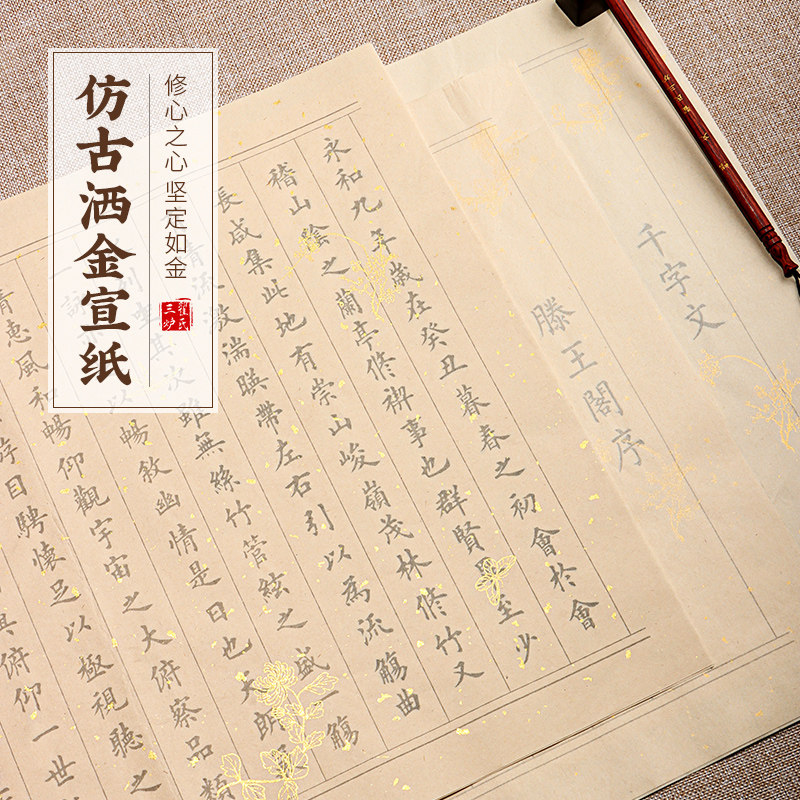 仿古洒金宣纸
修心之心 坚定如金
翟氏
三炉
千字文
滕王閣序
永和九年歲在癸丑暮春之初會於會
稽山陰之蘭亭修禊事也群賢畢至少
長咸集此地有崇山峻嶺茂林修竹又
有清流激湍暎帶左右引以為流觴曲
列坐其次雖無絲竹管絃之盛一觴
一詠以暢敘幽情是日也天朗氣
清惠風和暢仰觀宇宙之大俯察品類
游目騁懷足以極視聽之
其俯仰一世